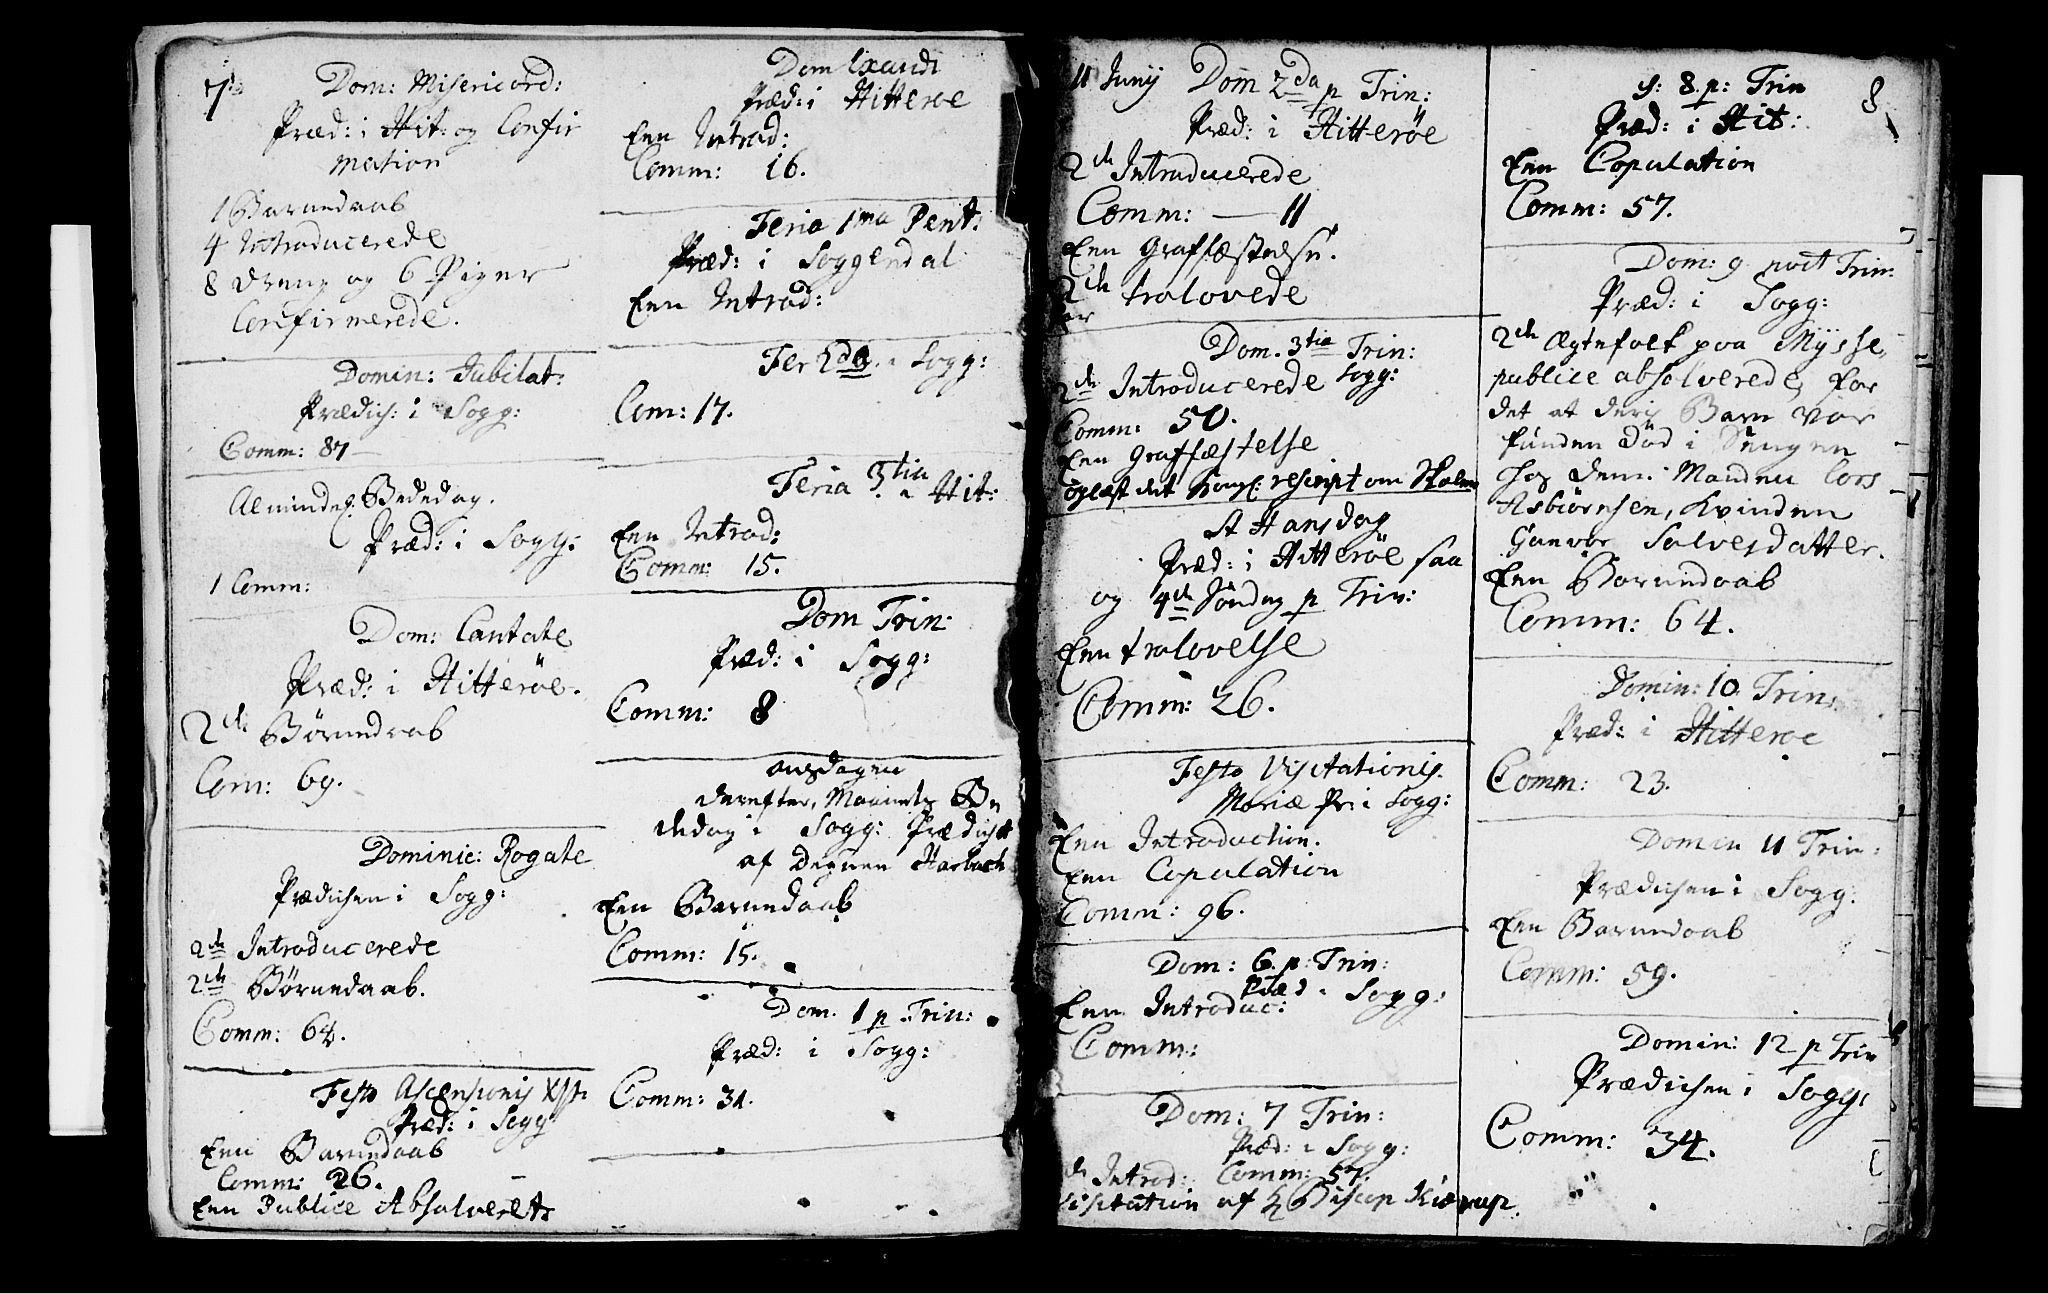 7
Dom: Misericord:
Præd: i Hit: og Confir
mation
1 Barnedaab
4 Introducerede
8 Dreng og 6 Piger
Confirmerede.
Domin: Jubilat:
Prædich: i Sogg:
Comm: 87
Almindel: Bededag.
Præd: i Sogg:
1 Comm:
Dom: Cantate
Præd: i Hitterøe.
2de Børnedaab
Com: 69.
Dominic: Rogate
Prædichen i Sogg:
2de Introducerede
2de Børnedaab.
Comm: 64.
Festo Ascensionis Xsti
Præd: i Sogg
Een Barnedaab
Comm: 26.
Een Publice Absolveret
Dom Exaudi
Præd: i Hitteroe
Een Introd:
Comm: 16.
Feria 1ma Pent:
Præd: i Soggendal
Een Introd:
Fer 2da i Sogg:
Com: 17.
Feria 3tia i Hit:
Een Introd:
Comm: 15.
Dom Trin:
Præd: i Sogg:
Comm: 8
onsdagen
derefter, Maanets Be
dedag i Sogg: Prædichet
af Degnen Harbach
Een Barnedaab
Comm: 15.
Dom. 1 p Trin:
Præd: i Sogg:
Comm: 31.
11 Junij Dom 2da p Trin:
Præd: i Hitterøe
2de Introducerede
Comm: — 11
Een Graffæstelse.
2de trolovede
Par
Dom. 3tia Trin:
2de Introducerede Sogg:
Comm: 50.
Een Graffæstelse
oplæst det Kongl: rescript om Skolen
St Hansdag
Præd: i Hitterøe saa
og 4de Søndag p Trin:
Een trolovelse
Comm: 26.
Festo Visitationis
Mariæ Pr: i Sogg:
Een Introduction.
Een Copulation
Comm: 96.
Dom: 6. p: Trin:
Præd i Sogg:
Een Introduc:
Comm:
Dom: 7 Trin:
Præd: i Sogg:
de Introd: Comm: 57.
visitation af H Biscop Kiærup.
8
S: 8. p: Trin
Præd: i Hit:
Een Copulation
Comm: 57.
Dom: 9 post Trin:
Præd: i Sogg:
2de Ægtefolk paa Mysse,
publice absolverede, for
det at deris Barn var
funden død i Sengen
hos dem: Manden Lars
Asbiørnsen, Kvinden
Gunvor Salvesdatter.
Een Barnedaab
Comm: 64.
Domin: 10 Trin:
Præd: i Hitterøe
Comm: 23.
Domin 11 Trin:
Prædichen i Sogg:
Een Barnedaab
Comm: 59.
Domin: 12 p Trin
Prædichen i Sogg:
Comm: 34.